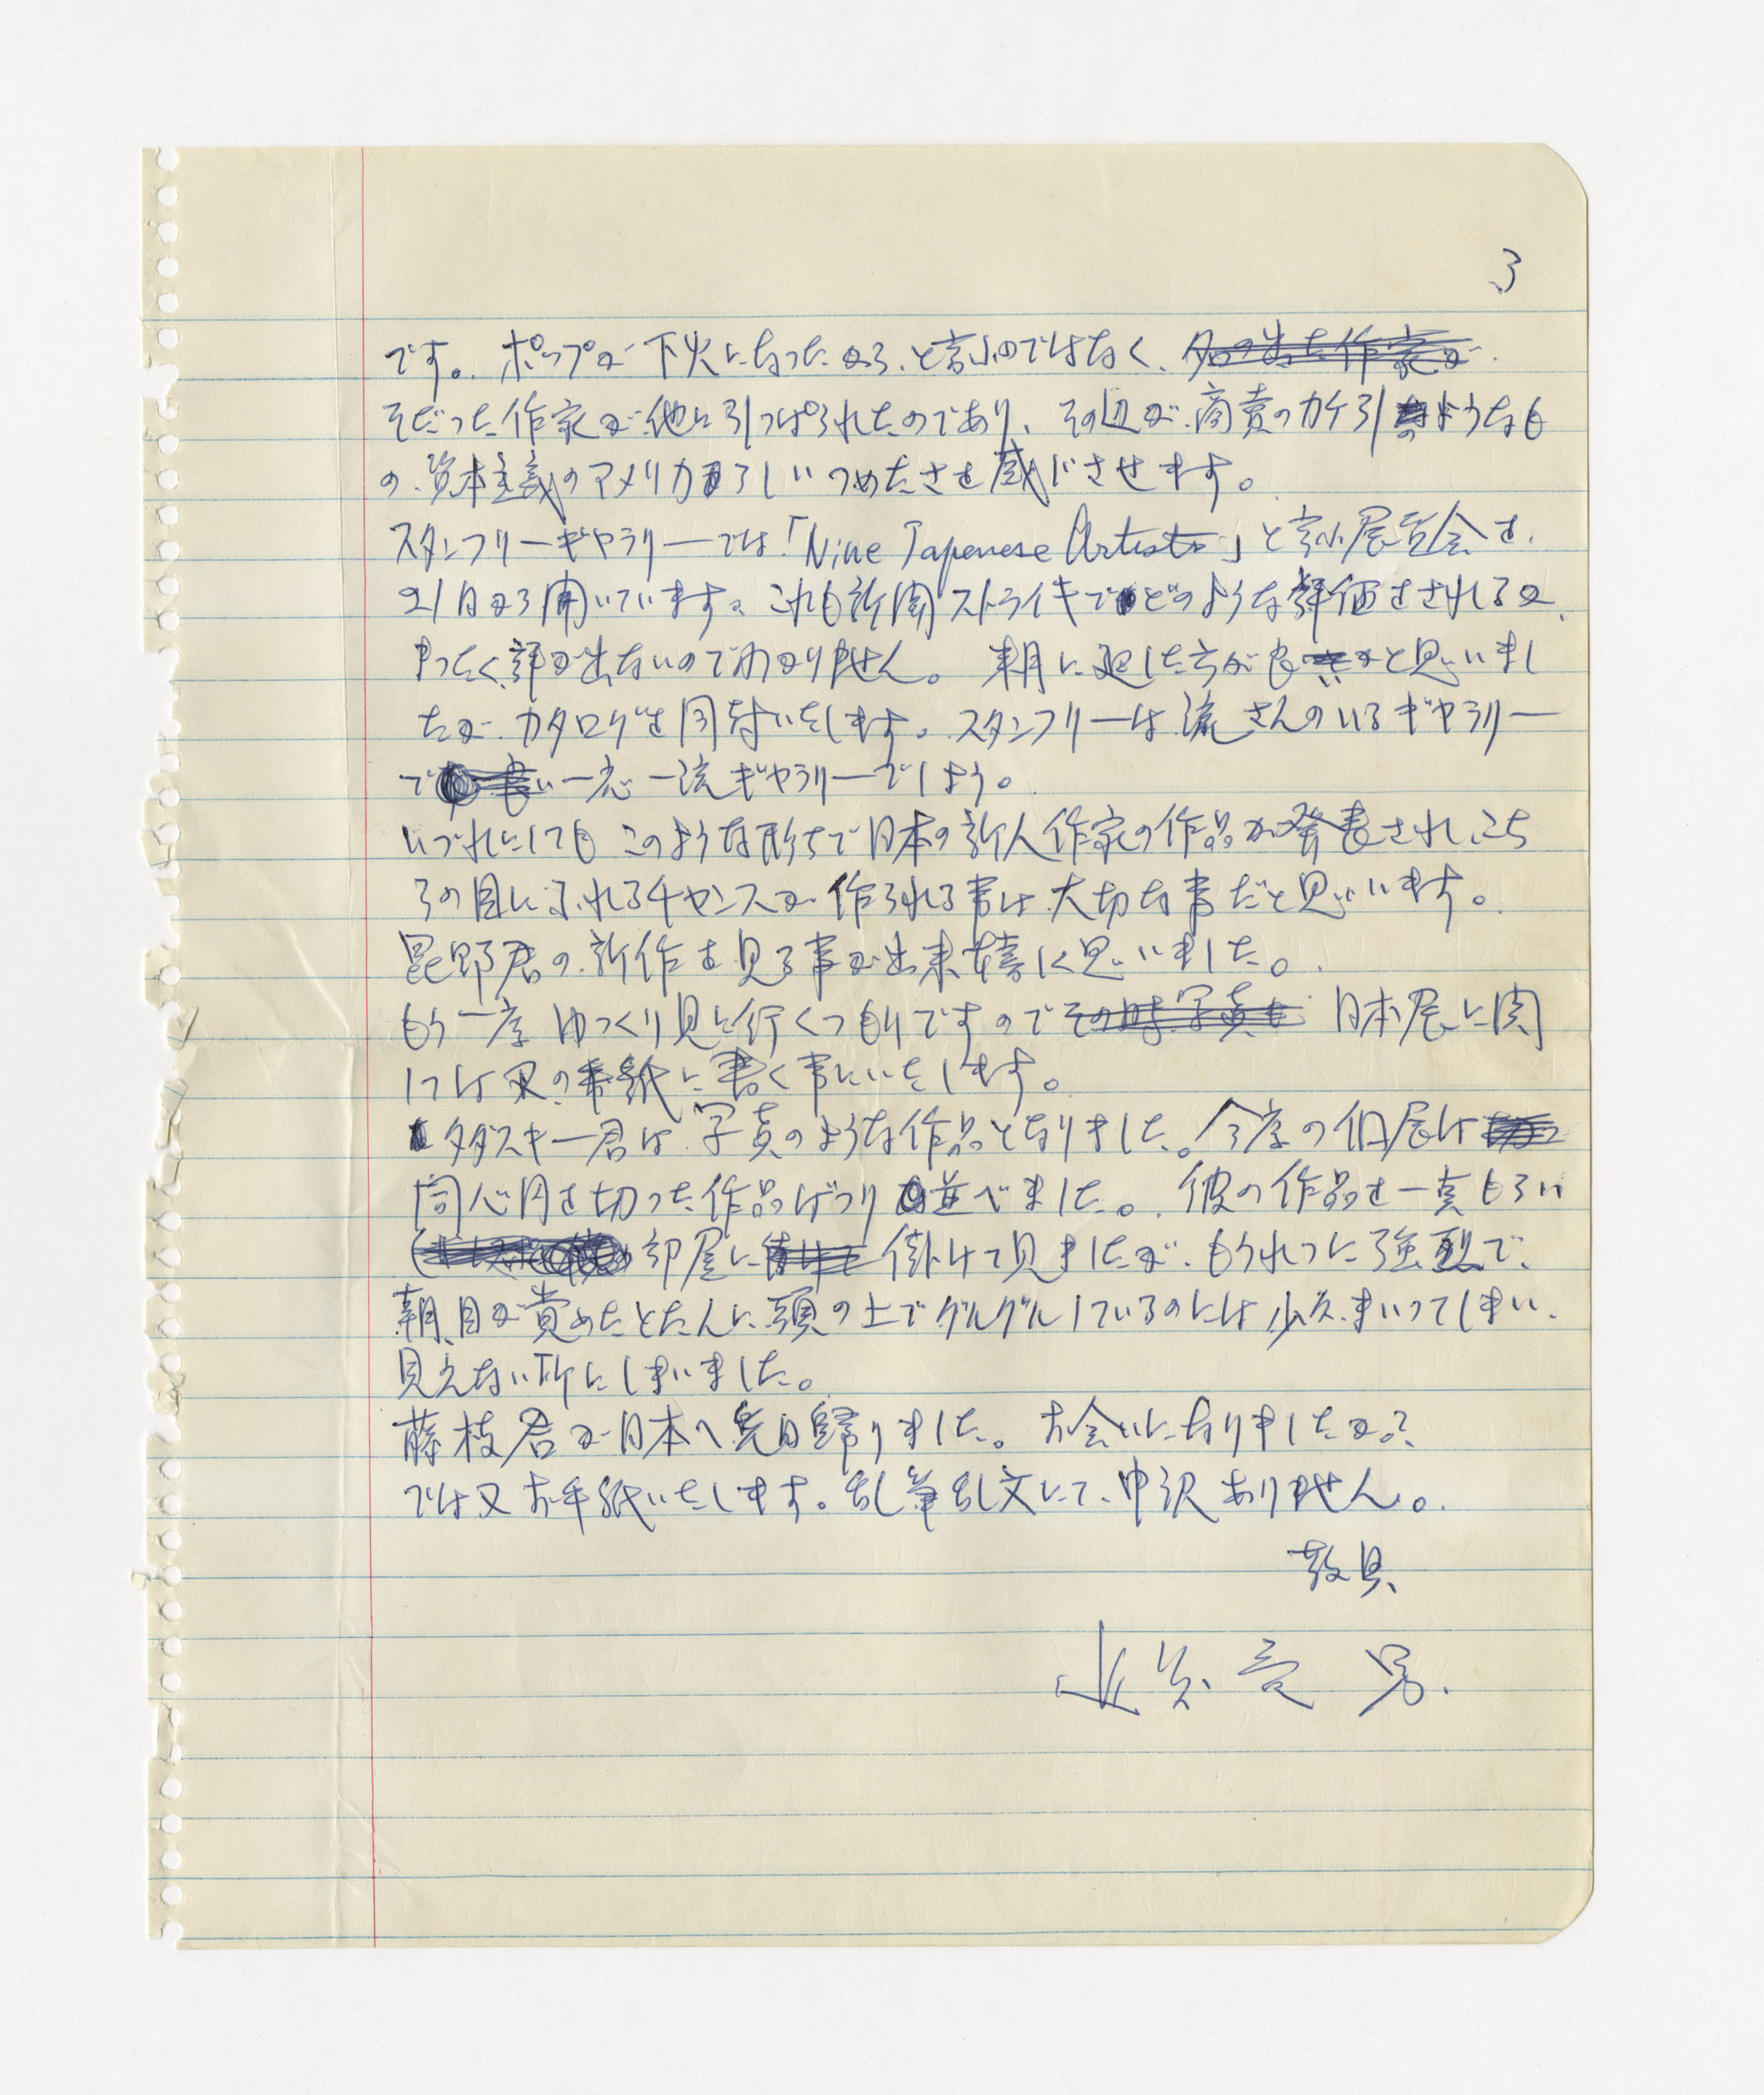 3
です。ポップが下火になったから、と言ふのではなく、名の出た作家が
そだった作家が他に引っぱられたのであり、その辺が商売のカケ引のようなも
の、資本主義のアメリカらしいつめたさを感じさせます。
スタンフリーギャラリーでは「Nine Japenese Artists」と言ふ展覧会を、
21日から開いています。これも新聞ストライキでどのような評価をされるか、
まったく評が出ないのでわかりません。来月に廻した方が良いかと思いまし
たが、カタログを同封いたします。スタンフリーは流さんのいるギャラリー
で 一応一流ギャラリーでしょう。
いづれにしても このような形ちで日本の新人作家の作品が発表され、こち
らの目にふれるチャンスが作られる事は大切な事だと思います。
昆野君の新作を見る事が出来嬉しく思いました。
もう一度ゆっくり見に行くつもりですのでその時写真も 日本展に関
しては又の手紙に書く事にいたします。
タダスキー君は写真のような作品となりました。今度の個展は
同心円を切った作品ばつり並べました。彼の作品を一点もらい
部屋に 掛けて見ましたが、もうれつに強烈で、
朝、目が覚めたとたんに、頭の上でグルグルしているのには少々まいってしまい、
見えない所にしまいました。
藤枝君が日本へ先日帰りました。お会いになりましたか？
では又お手紙いたします。乱筆乱文にて、申訳ありません。
敬具、